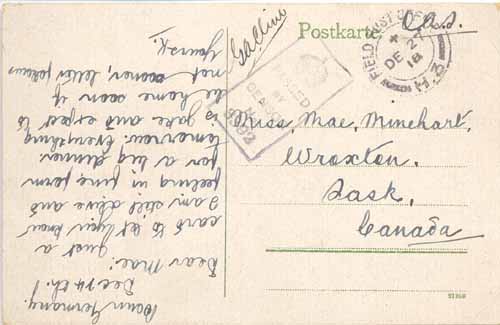 Postkarte
O.A.S.
FIELD POST OFFICE
DE 27
18
H.3
PASSED
BY
CENSOR
Miss, Mae, Minehart,
Wroxton.
Sask,
Canada
Bonn Germany.
Dec
Dear Mae:
Just a
card to let you know
I am still alive and
feeling in fine form
for a big dinner
tomorrow. Everything
is jake and expect to
be home soon if
not sooner, letter follows
Yours K.